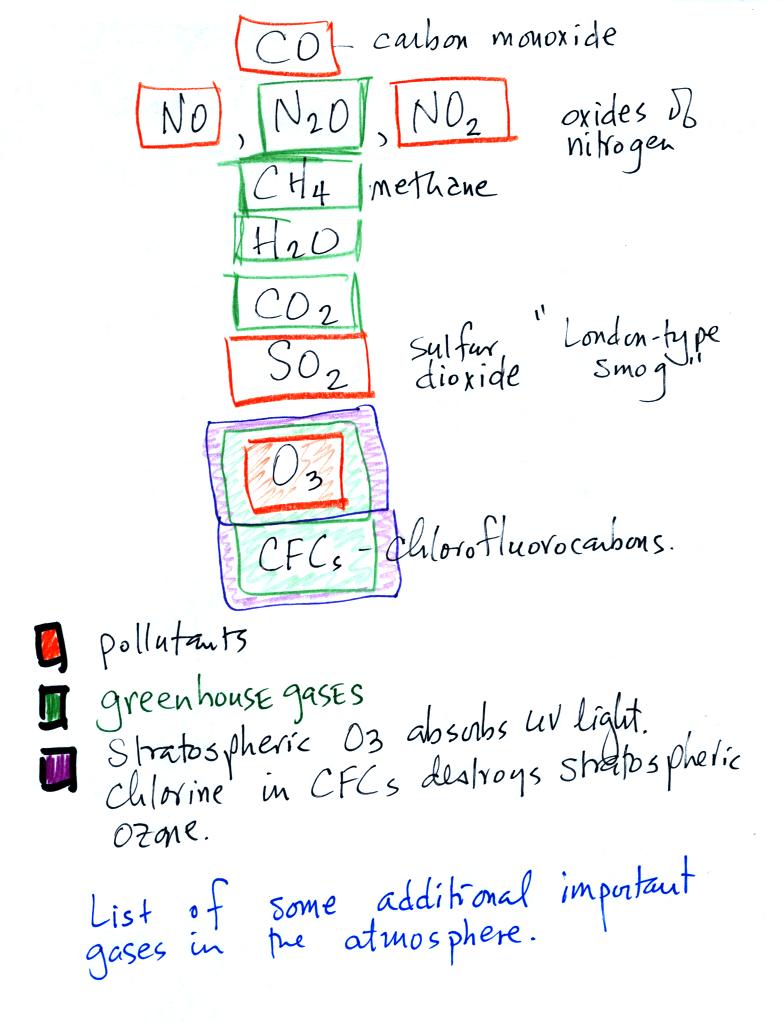 CO – carbon monoxide
NO , N2O , NO2 oxides of
nitrogen
CH4 methane
H2O
CO2
SO2 sulfur dioxide "London-type smog"
O3
CFCs – chlorofluorocarbons.
pollutants
greenhouse gases
Stratospheric O3 absorbs UV light.
Chlorine in CFCs destroys stratospheric
ozone.
List of some additional important
gases in the atmosphere.